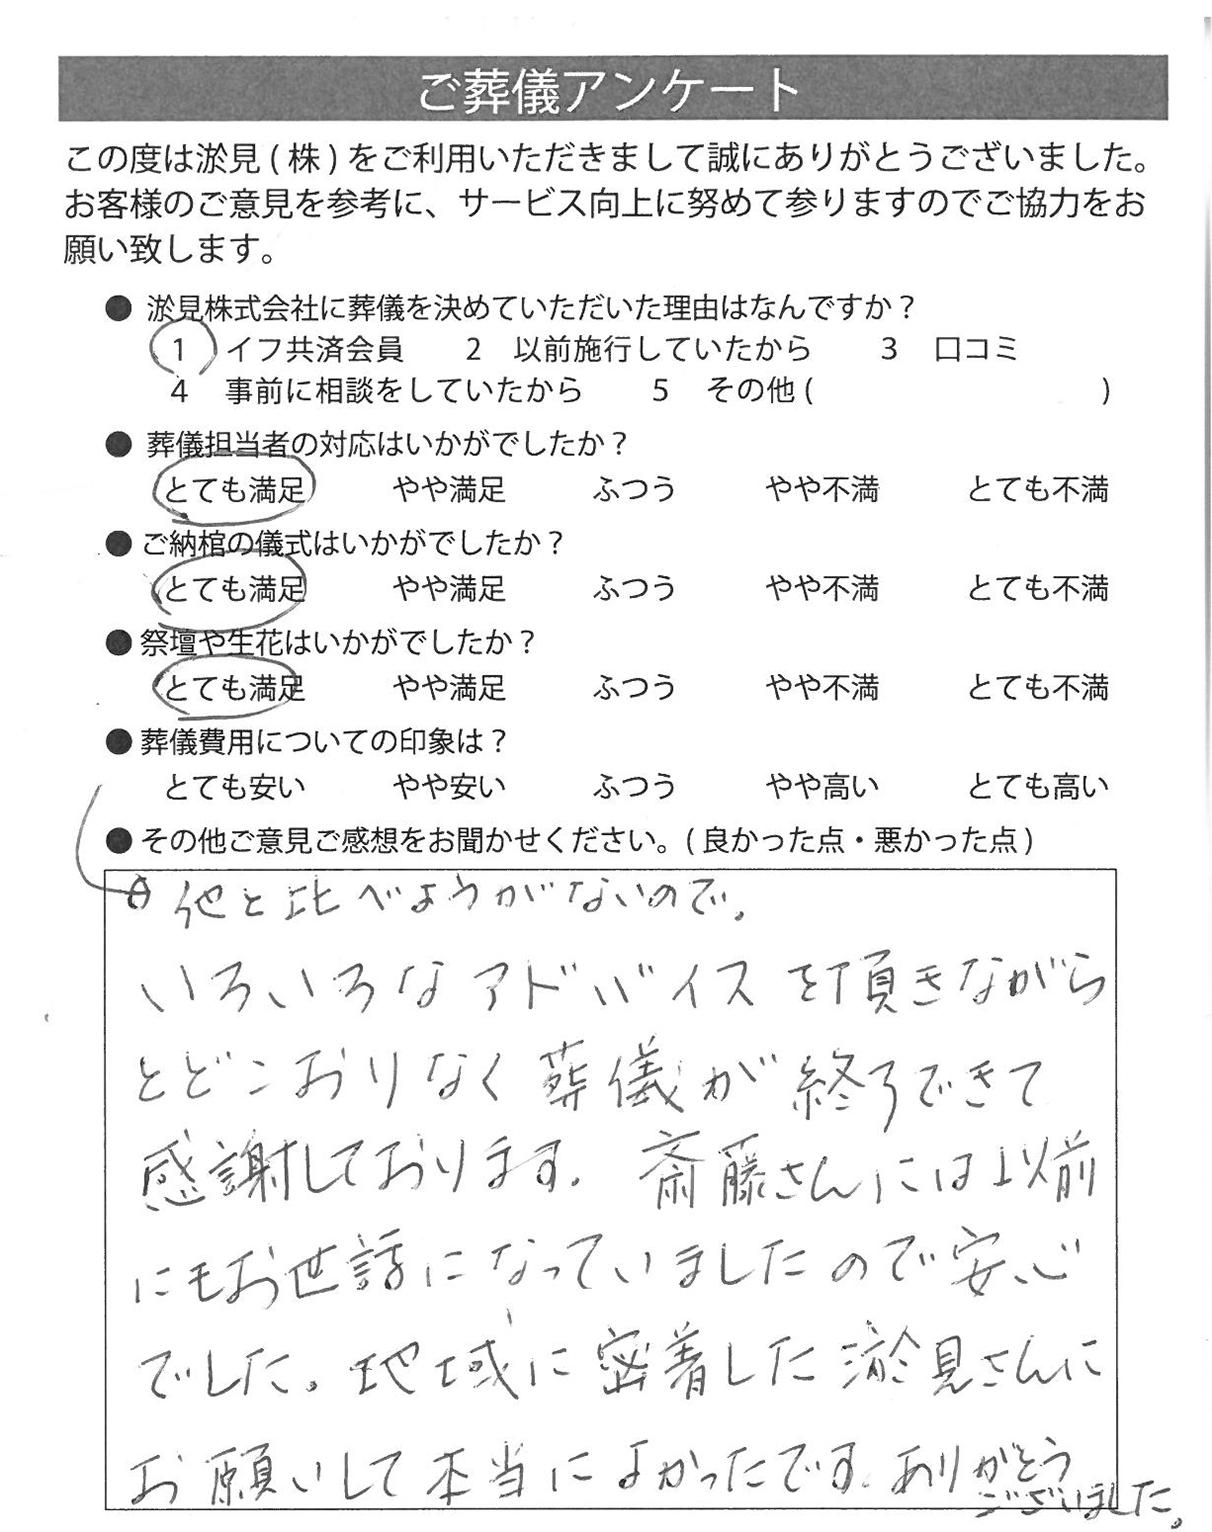 ご葬儀アンケート
この度は淤見(株)をご利用いただきまして誠にありがとうございました。
お客様のご意見を参考に、サービス向上に努めて参りますのでご協力をお
願い致します。
● 淤見株式会社に葬儀を決めていただいた理由はなんですか？
1 イフ共済会員 2 以前施行していたから 3 口コミ
4 事前に相談をしていたから 5 その他( )
● 葬儀担当者の対応はいかがでしたか？
とても満足 やや満足 ふつう やや不満 とても不満
● ご納棺の儀式はいかがでしたか？
とても満足 やや満足 ふつう やや不満 とても不満
● 祭壇や生花はいかがでしたか？
とても満足 やや満足 ふつう やや不満 とても不満
● 葬儀費用についての印象は？
とても安い やや安い ふつう やや高い とても高い
● その他ご意見ご感想をお聞かせください。(良かった点・悪かった点)
他と比べようがないので。
いろいろなアドバイスを頂きながら
とどこおりなく葬儀が終了できて
感謝しております。斎藤さんには以前
にもお世話になっていましたので安心
でした。地域に密着した淤見さんに
お願いして本当によかったです。ありがとう
ございました。